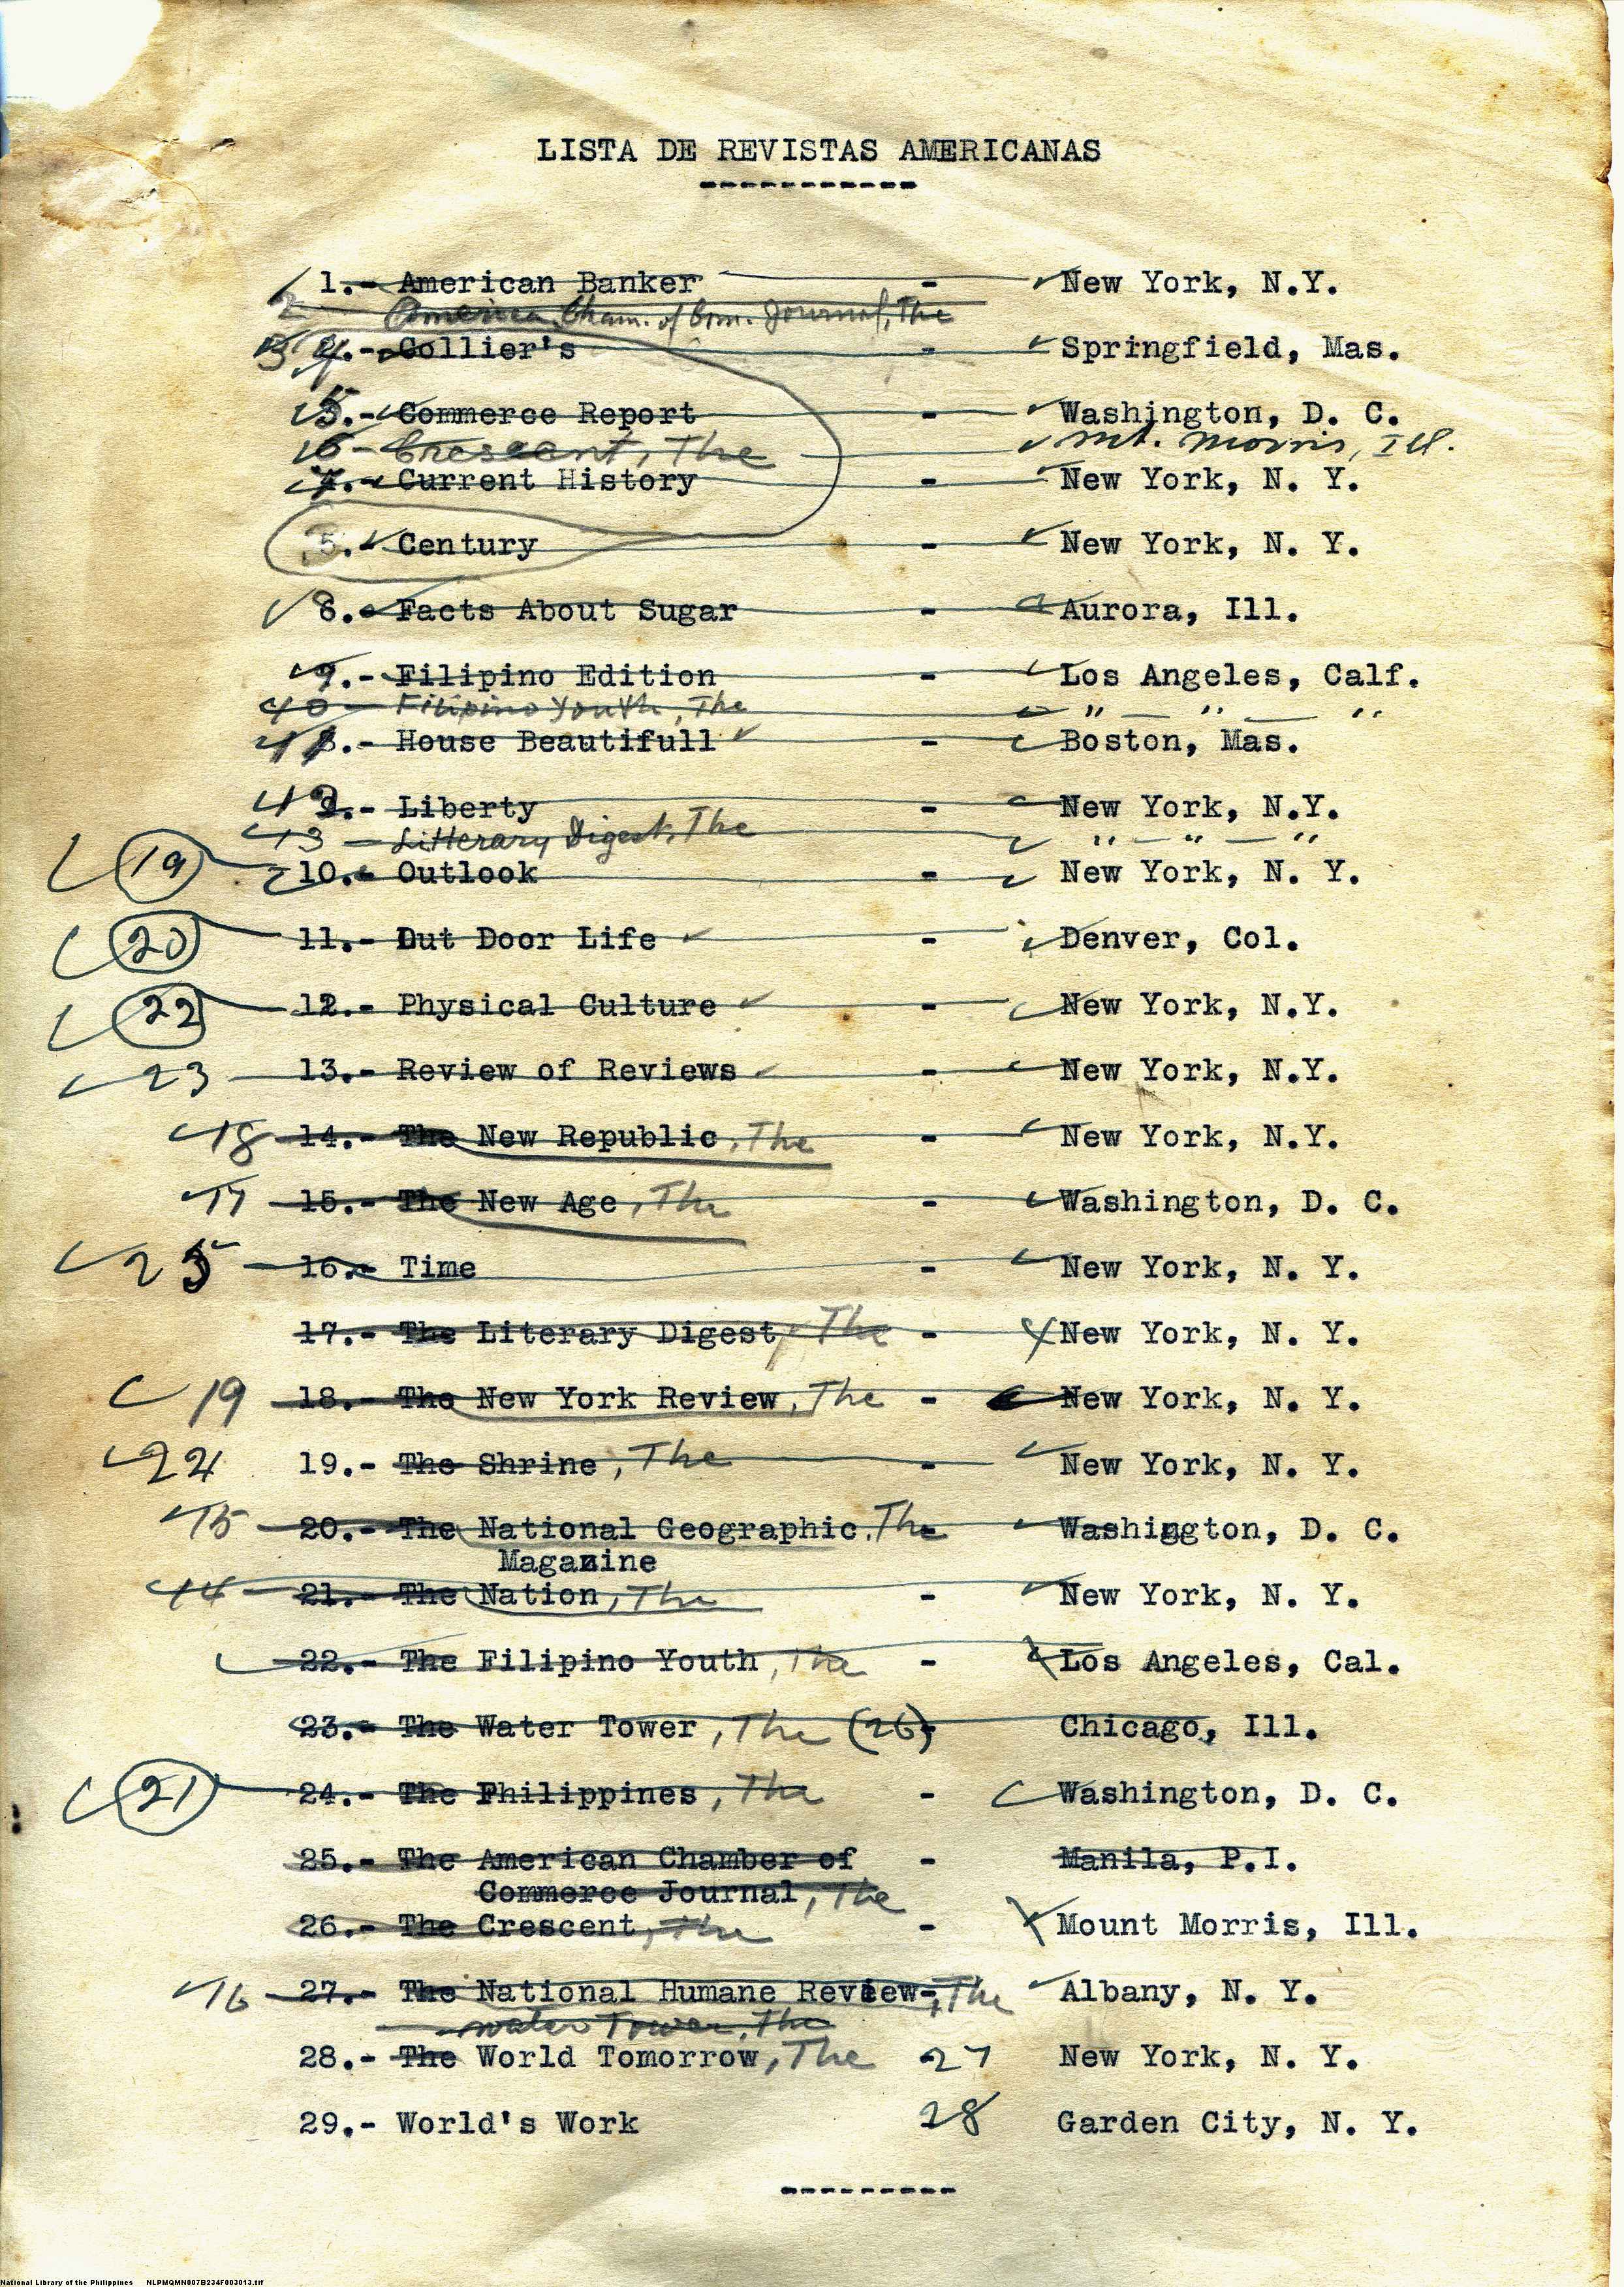 LISTA DE REVISTAS AMERICANAS
1.- American Banker - New York, N.Y.
2 America Cham. of Com. Journal, The
3 4.- Collier's - Springfield, Mas.
5.- Commerce Report - Washington, D. C.
6 - Crescent, The Mt. Morris, Ill.
7.- Current History - New York, N. Y.
5.- Century - New York, N. Y.
8.- Facts About Sugar - Aurora, Ill.
9.- Filipino Edition - Los Angeles, Calf.
10 - Filipino Youth, The " — " — "
11.- House Beautifull - Boston, Mas.
12.- Liberty - New York, N.Y.
13 - Litterary Digest, The " — " — "
19 10.- Outlook - New York, N. Y.
20 11.- Out Door Life - Denver, Col.
22 12.- Physical Culture - New York, N.Y.
23 13.- Review of Reviews - New York, N.Y.
18 14.- The New Republic, The - New York, N.Y.
17 15.- The New Age, The - Washington, D. C.
25 16.- Time - New York, N. Y.
17.- The Literary Digest, The - New York, N. Y.
19 18.- The New York Review, The - New York, N. Y.
24 19.- The Shrine, The - New York, N. Y.
15 20.- The National Geographic, The - Washington, D. C.
Magazine
14 21.- The Nation, The - New York, N. Y.
22.- The Filipino Youth, The - Los Angeles, Cal.
23.- The Water Tower, The (26) - Chicago, Ill.
21 24.- The Philippines, The - Washington, D. C.
25.- The American Chamber of - Manila, P.I.
Commerce Journal, The
26.- The Crescent, The - Mount Morris, Ill.
16 27.- The National Humane Review-, The Albany, N. Y.
Water Tower, The
28.- The World Tomorrow, The 27 New York, N. Y.
29.- World's Work 28 Garden City, N. Y.
National Library of the Philippines NLPMQMN007B234F003013.tif